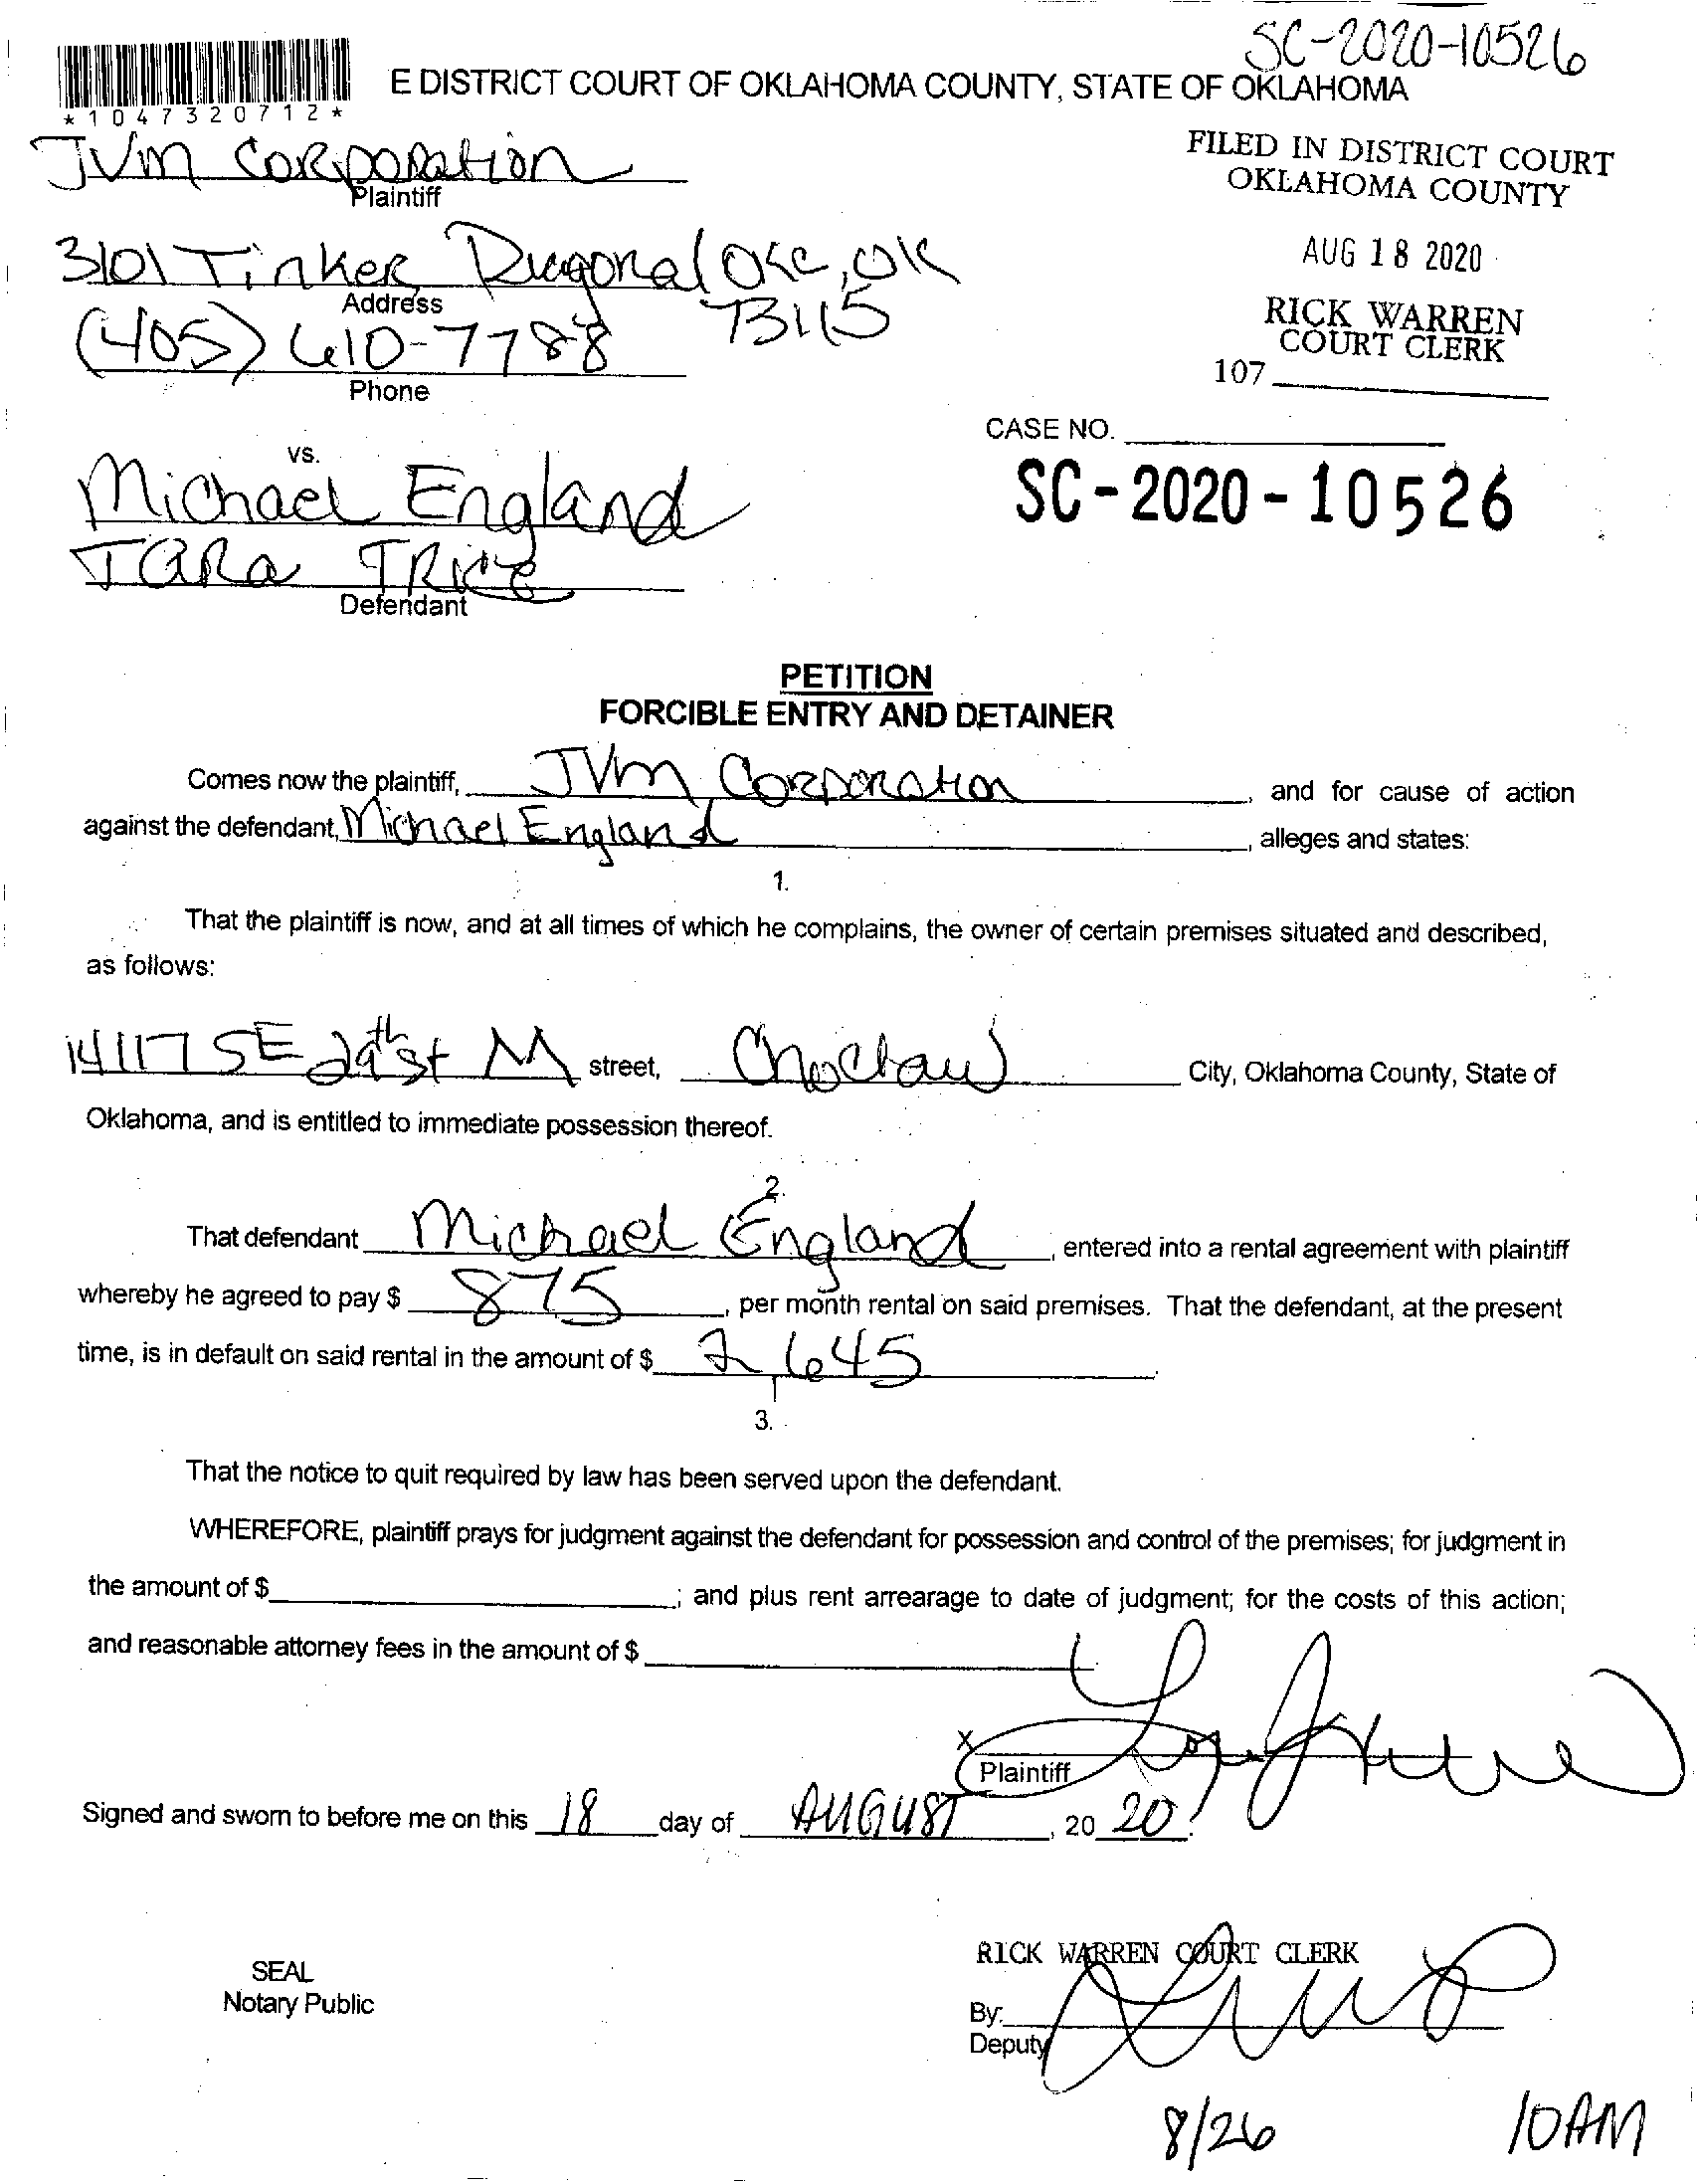 SC-2020-10526
E DISTRICT COURT OF OKLAHOMA COUNTY, STATE OF OKLAHOMA
*1047320712*
JVM CORPORATION
Plaintiff
FILED IN DISTRICT COURT
OKLAHOMA COUNTY
3101 Tinker Diagonal OKC, OK
Address
73115
AUG 18 2020
(405) 610-7788
Phone
RICK WARREN
COURT CLERK
107
CASE NO.
SC-2020-10526
vs.
Michael England
TARA TRICE
Defendant
PETITION
FORCIBLE ENTRY AND DETAINER
Comes now the plaintiff, JVM CORPORATION, and for cause of action
against the defendant, Michael England, alleges and states:
1.
That the plaintiff is now, and at all times of which he complains, the owner of certain premises situated and described,
as follows:
14117 SE 29th St M street, Choctaw City, Oklahoma County, State of
Oklahoma, and is entitled to immediate possession thereof.
2.
That defendant Michael England, entered into a rental agreement with plaintiff
whereby he agreed to pay $ 875, per month rental on said premises. That the defendant, at the present
time, is in default on said rental in the amount of $ 2,645.
3.
That the notice to quit required by law has been served upon the defendant.
WHEREFORE, plaintiff prays for judgment against the defendant for possession and control of the premises; for judgment in
the amount of $; and plus rent arrearage to date of judgment; for the costs of this action;
and reasonable attorney fees in the amount of $
X
Plaintiff
Signed and sworn to before me on this 18 day of AUGUST, 20 20.
SEAL
Notary Public
RICK WARREN COURT CLERK
By:
Deputy
8/26 10AM